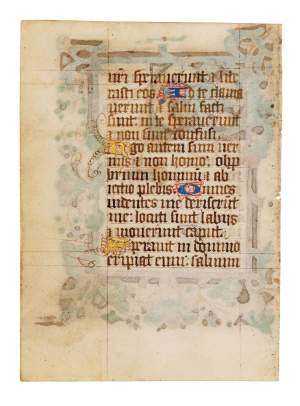 nri speraverunt & libe
rasti eos Ad te clama
verunt & salvi facti
sunt in te speraverunt
& non sunt confusi
Ego autem sum ver
mis & non homo obp
brium hominum & ab
iectio plebis Omnes
videntes me deriserunt
me locuti sunt labijs
& moverunt caput
Speravit in domino
eripiat eum salvum